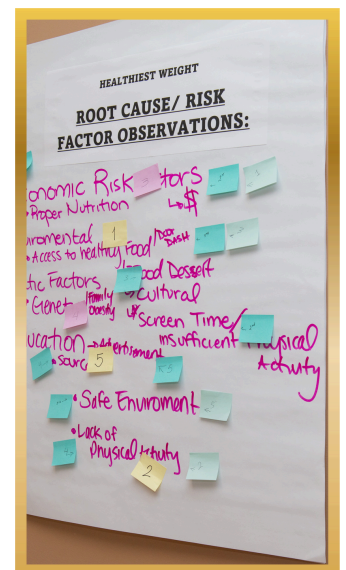 HEALTHIEST WEIGHT
ROOT CAUSE/ RISK
FACTOR OBSERVATIONS:
onomic Risk tors
• Proper Nutrition ↳ $
iromental 1
• Access to healthy Food / Door Dash
tic Factors Food Dessert
• Genet Family obesity Cultural
Screen Time/
ucation → Advertisement insufficient Physical Activity
• Sourc 5
• Safe Enviroment
• Lack of
Physical Activity
2